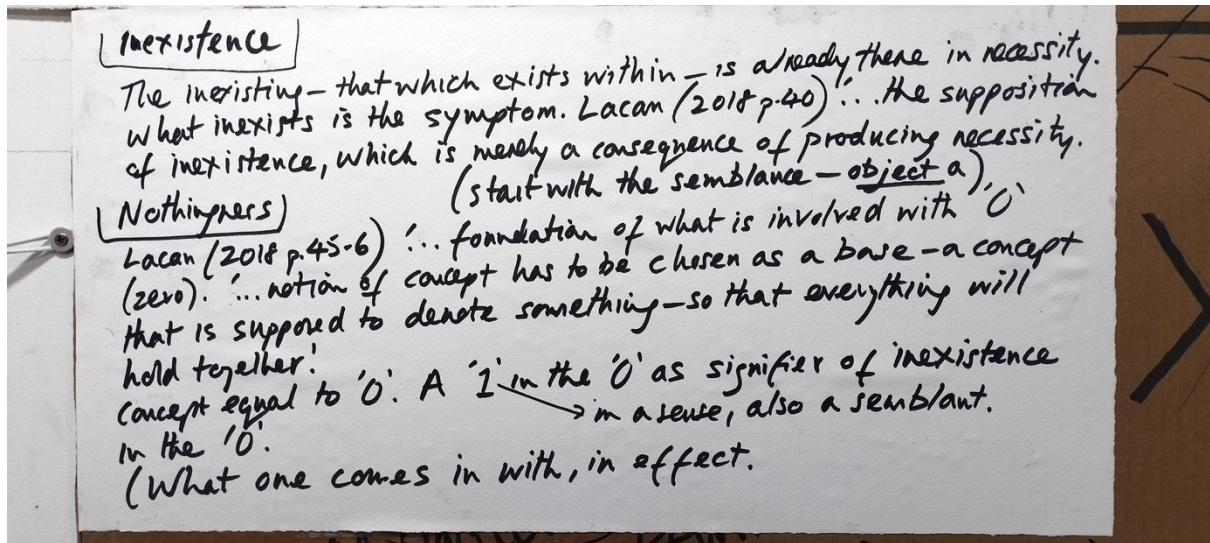 Inexistence
The inexisting – that which exists within – is already there in necessity.
What inexists is the symptom. Lacan (2018 p.40) '... the supposition
of inexistence, which is merely a consequence of producing necessity.
(start with the semblance – object a)
Nothingness
Lacan (2018 p.45-6) '... foundation of what is involved with '0'
(zero). '... notion of concept has to be chosen as a base – a concept
that is supposed to denote something – so that everything will
hold together.'
concept equal to '0'. A '1' in the '0' as signifier of inexistence
in the '0'.
in a sense, also a semblant.
(What one comes in with, in effect.